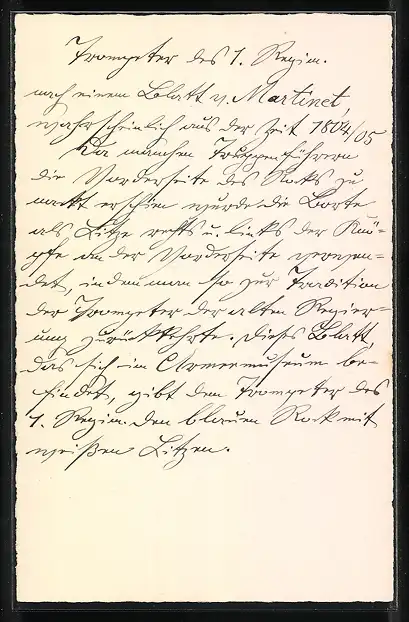 Trompeter des 1. Regim.
nach einem Blatt v. Martinet,
wahrscheinlich aus der Zeit 1804/05
Da manchen Truppenführern
die Vorderseite des Rocks zu
nackt erschien wurde die Borte
als Litze rechts u. links der Knö-
pfe an der Vorderseite verwen-
det, indem man so zur Tradition
der Trompeter der alten Regier-
ung zurückkehrte. Dieses Blatt,
das sich im Armeemuseum be-
findet, gibt dem Trompeter des
1. Regim. den blauen Rock mit
weißen Litzen.